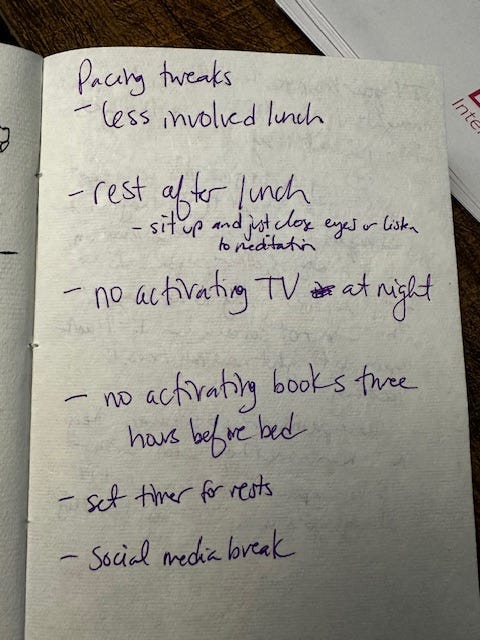 Pacing tweaks
- less involved lunch
- rest after lunch
- sit up and just close eyes or listen
to meditation
- no activating TV at night
- no activating books three
hours before bed
- set timer for rests
- social media break
Inter